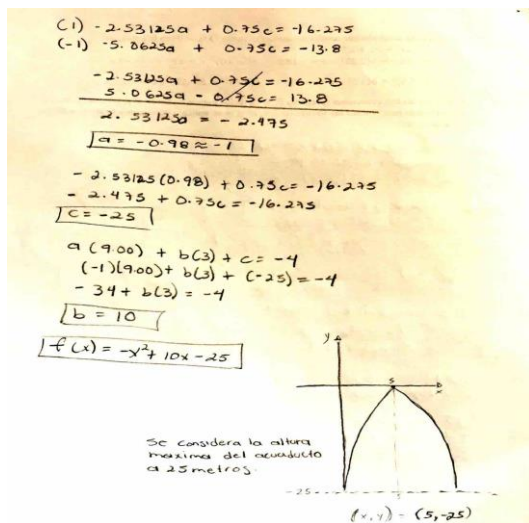 (1) -2.53125a + 0.75c = -16.275
(-1) -5.0625a + 0.75c = -13.8
-2.53125a + 0.75c = -16.275
5.0625a - 0.75c = 13.8
2.53125a = -2.475
a = -0.98 ≈ -1
-2.53125(0.98) + 0.75c = -16.275
-2.475 + 0.75c = -16.275
c = -25
a(9.00) + b(3) + c = -4
(-1)(9.00) + b(3) + (-25) = -4
-34 + b(3) = -4
b = 10
f(x) = -x² + 10x - 25
y
5
x
Se considera la altura
maxima del acueducto
a 25 metros.
-25
(x,y) = (5,-25)